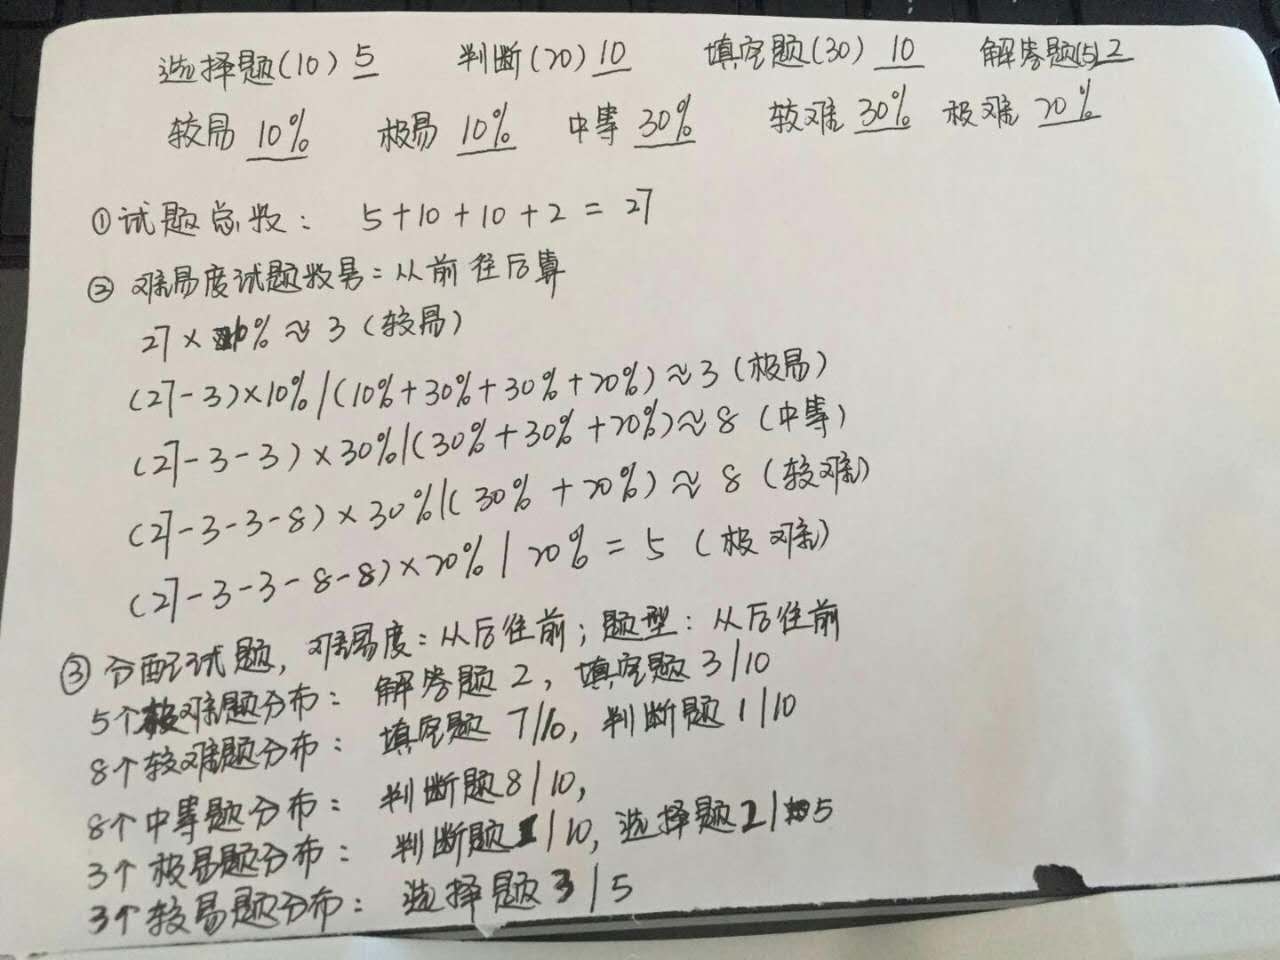 选择题(10) 5 判断(20) 10 填空题(30) 10 解答题(5) 2
较易 10% 极易 10% 中等 30% 较难 30% 极难 20%
①试题总数: 5+10+10+2=27
②难易度试题数量:从前往后算
27×10%≈3(较易)
(27-3)×10%/(10%+30%+30%+20%)≈3(极易)
(27-3-3)×30%/(30%+30%+20%)≈8(中等)
(27-3-3-8)×30%/(30%+20%)≈8(较难)
(27-3-3-8-8)×20%/20%=5(极难)
③分配试题,难易度:从后往前;题型:从后往前
5个极难题分布:解答题2,填空题3/10
8个较难题分布:填空题7/10,判断题1/10
8个中等题分布:判断题8/10,
3个极易题分布:判断题1/10,选择题2/5
3个较易题分布:选择题3/5